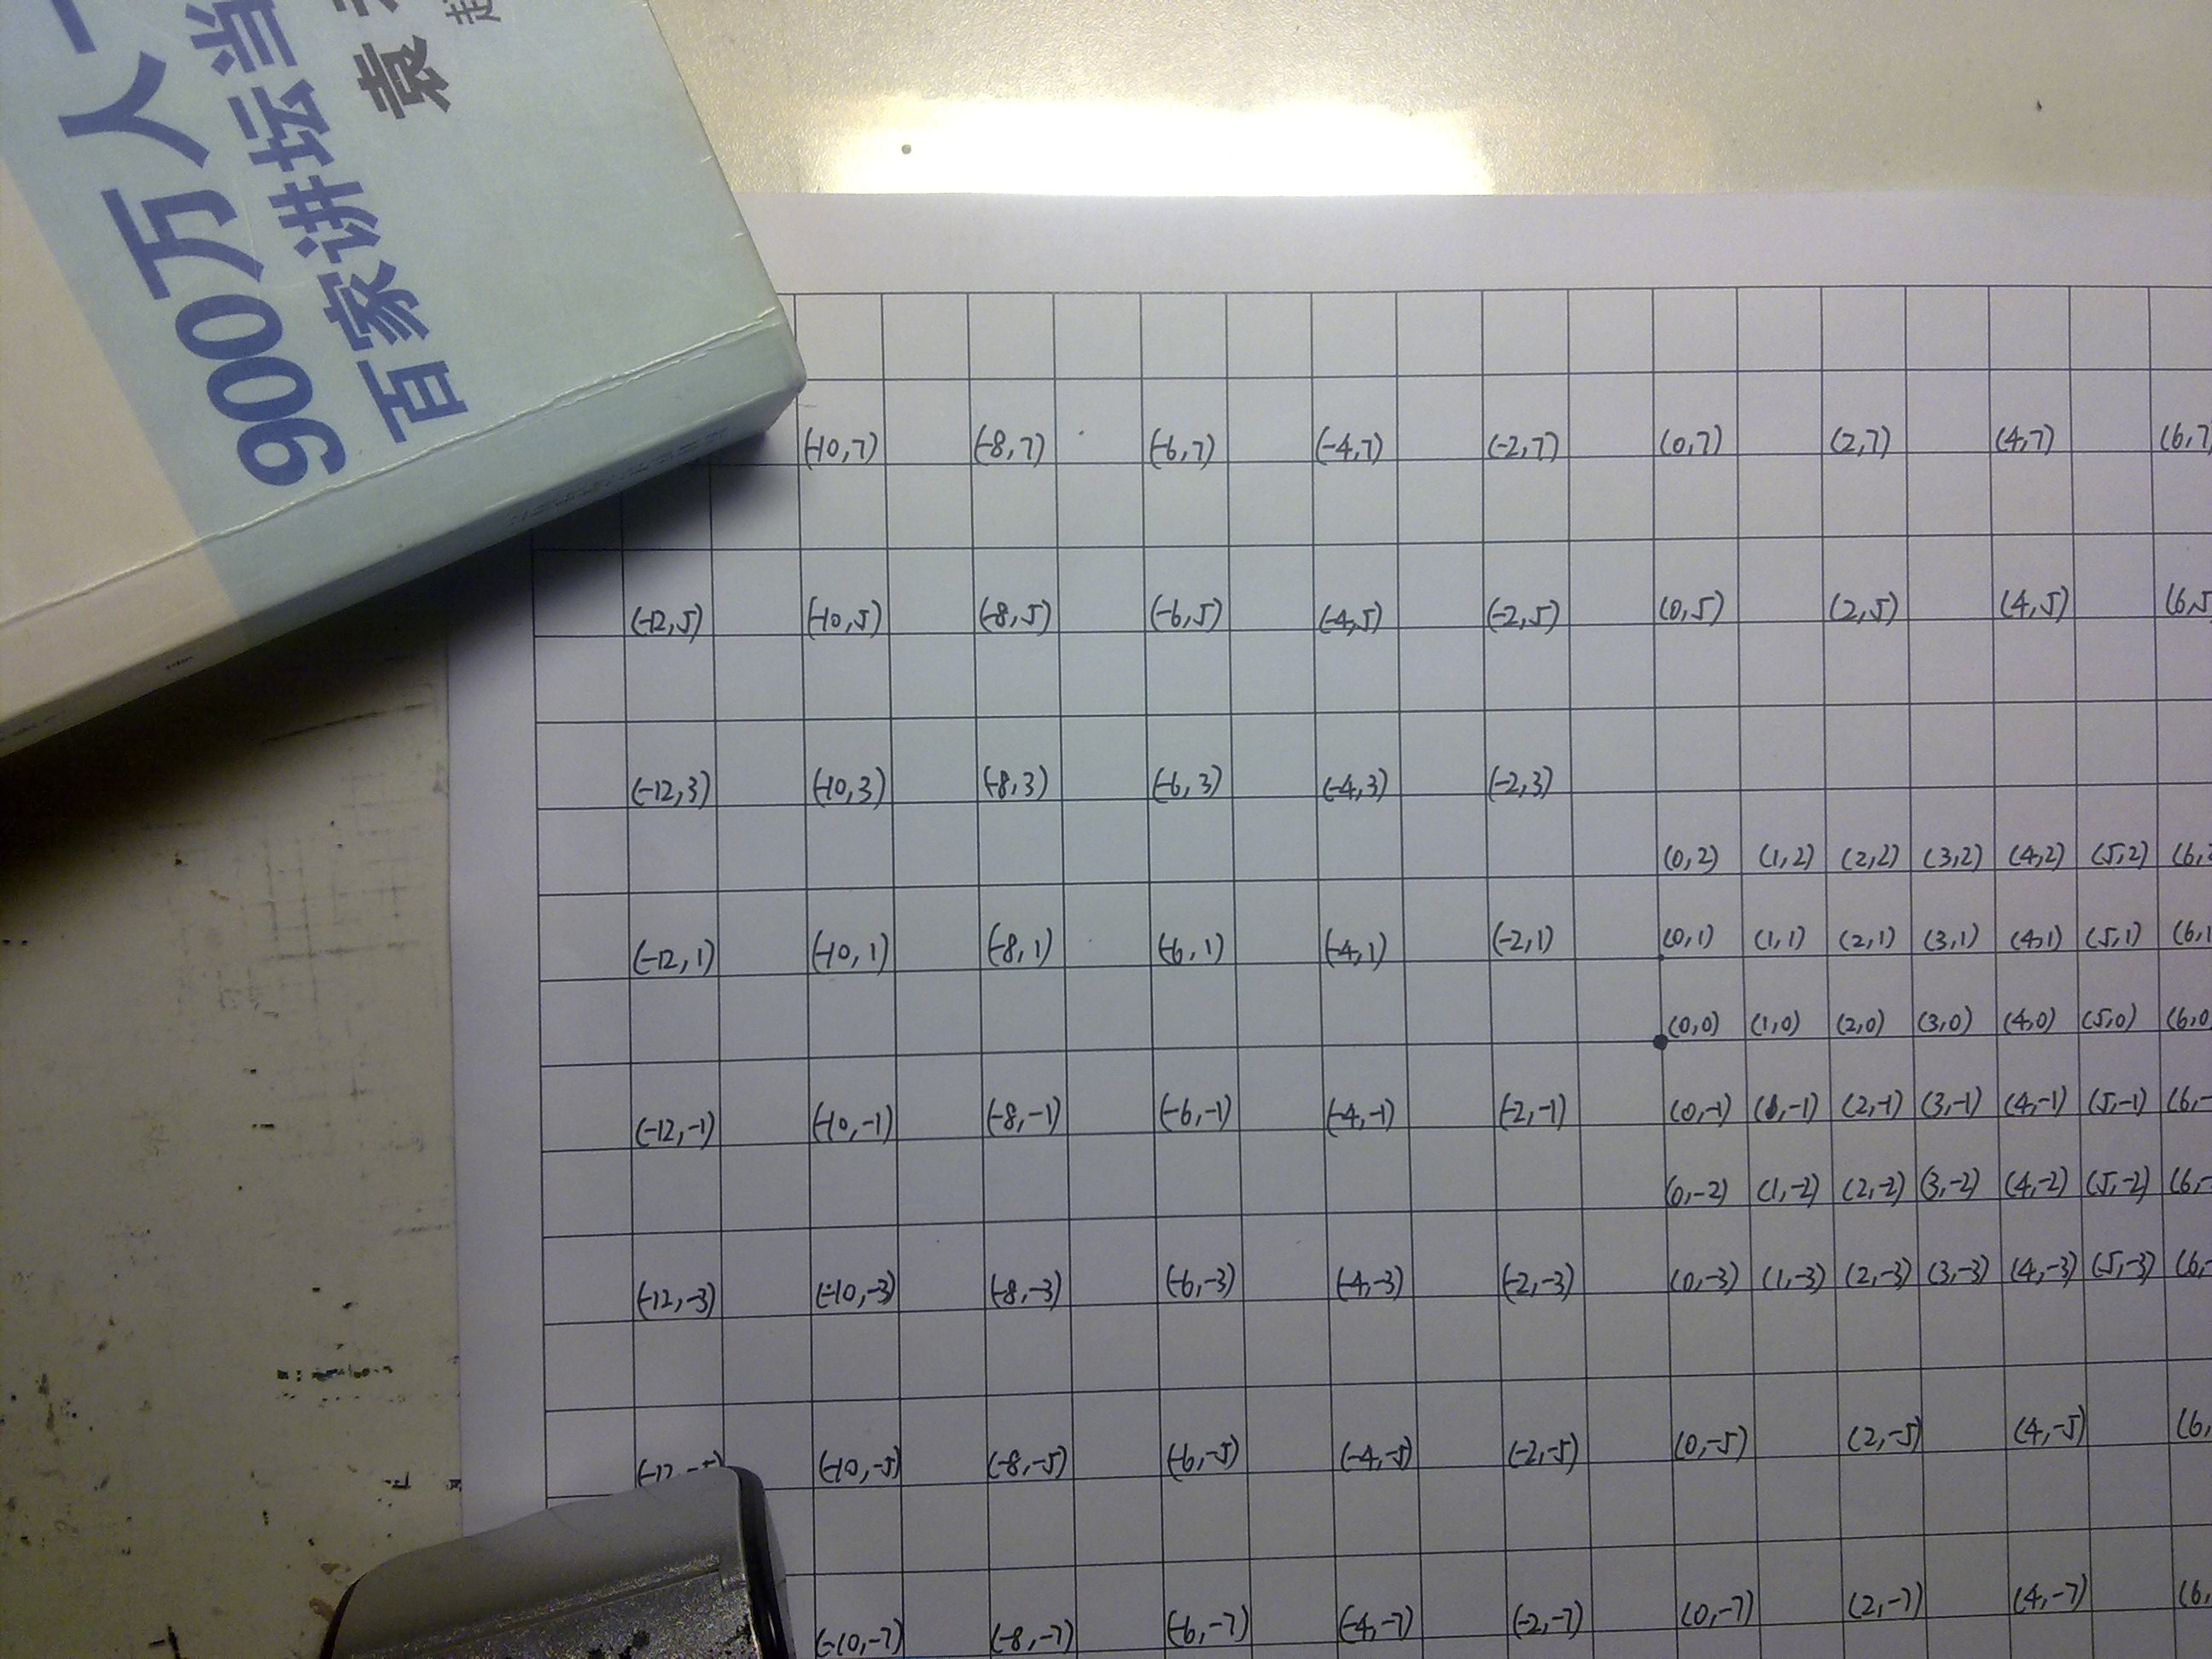 900万人一
百家讲坛当
袁
(-10,7) (-8,7) (-6,7) (-4,7) (-2,7) (0,7) (2,7) (4,7) (6,7
(-12,5) (-10,5) (-8,5) (-6,5) (-4,5) (-2,5) (0,5) (2,5) (4,5) (6,5
(-12,3) (-10,3) (-8,3) (-6,3) (-4,3) (-2,3)
(0,2) (1,2) (2,2) (3,2) (4,2) (5,2) (6,2
(-12,1) (-10,1) (-8,1) (-6,1) (-4,1) (-2,1) (0,1) (1,1) (2,1) (3,1) (4,1) (5,1) (6,1
(0,0) (1,0) (2,0) (3,0) (4,0) (5,0) (6,0
(-12,-1) (-10,-1) (-8,-1) (-6,-1) (-4,-1) (-2,-1) (0,-1) (1,-1) (2,-1) (3,-1) (4,-1) (5,-1) (6,-
(0,-2) (1,-2) (2,-2) (3,-2) (4,-2) (5,-2) (6,-
(-12,-3) (-10,-3) (-8,-3) (-6,-3) (-4,-3) (-2,-3) (0,-3) (1,-3) (2,-3) (3,-3) (4,-3) (5,-3) (6,-
(-12,-5) (-10,-5) (-8,-5) (-6,-5) (-4,-5) (-2,-5) (0,-5) (2,-5) (4,-5) (6,
(-10,-7) (-8,-7) (-6,-7) (-4,-7) (-2,-7) (0,-7) (2,-7) (4,-7) (6,